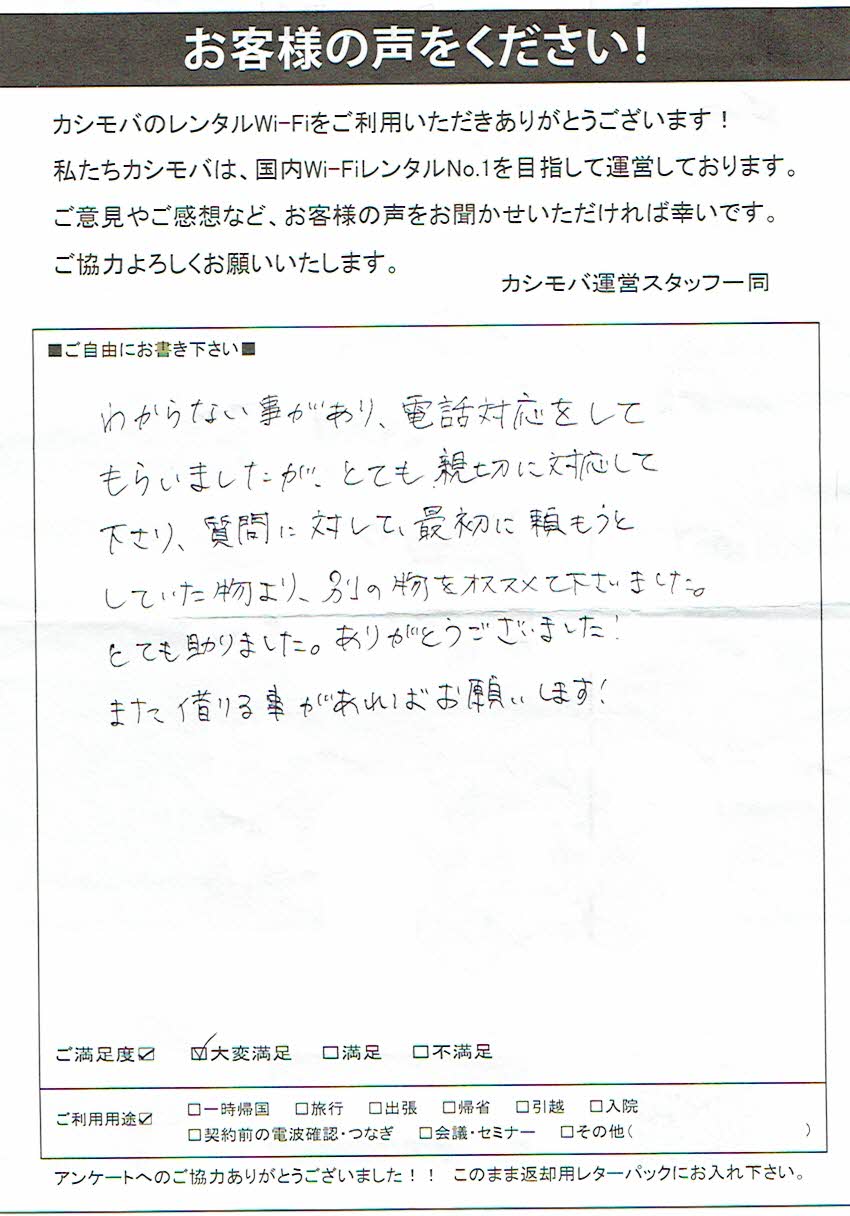 お客様の声をください！
カシモバのレンタルWi-Fiをご利用いただきありがとうございます！
私たちカシモバは、国内Wi-FiレンタルNo.1を目指して運営しております。
ご意見やご感想など、お客様の声をお聞かせいただければ幸いです。
ご協力よろしくお願いいたします。
カシモバ運営スタッフ一同
■ご自由にお書き下さい■
わからない事があり、電話対応をして
もらいましたが、とても親切に対応して
下さり、質問に対して、最初に頼もうと
していた物より、別の物をオススメて下さいました。
とても助りました。ありがとうございました！
また借りる事があればお願いします！
ご満足度☑ ☑大変満足 □満足 □不満足
ご利用用途☑ □一時帰国 □旅行 □出張 □帰省 □引越 □入院
□契約前の電波確認・つなぎ □会議・セミナー □その他( )
アンケートへのご協力ありがとうございました！！ このまま返却用レターパックにお入れ下さい。